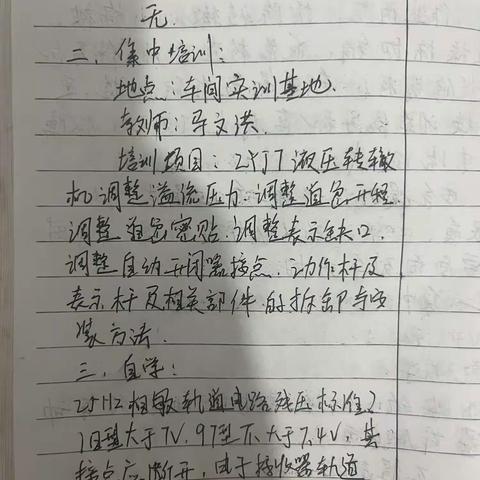 无.
二、集中培训:
地点:车间实训基地.
教师:马文洪.
培训项目:ZYJ7液压转辙
机调整溢流压力.调整道岔开程.
调整道岔密贴.调整表示缺口.
调整自动开闭器接点、动作杆及
表示杆及相关部件的拆卸与安
装方法.
三、自学:
25HZ相敏轨道电路残压标准?
旧型大于7V.97型不大于7.4V,其
接点应断开,由于接收器轨道